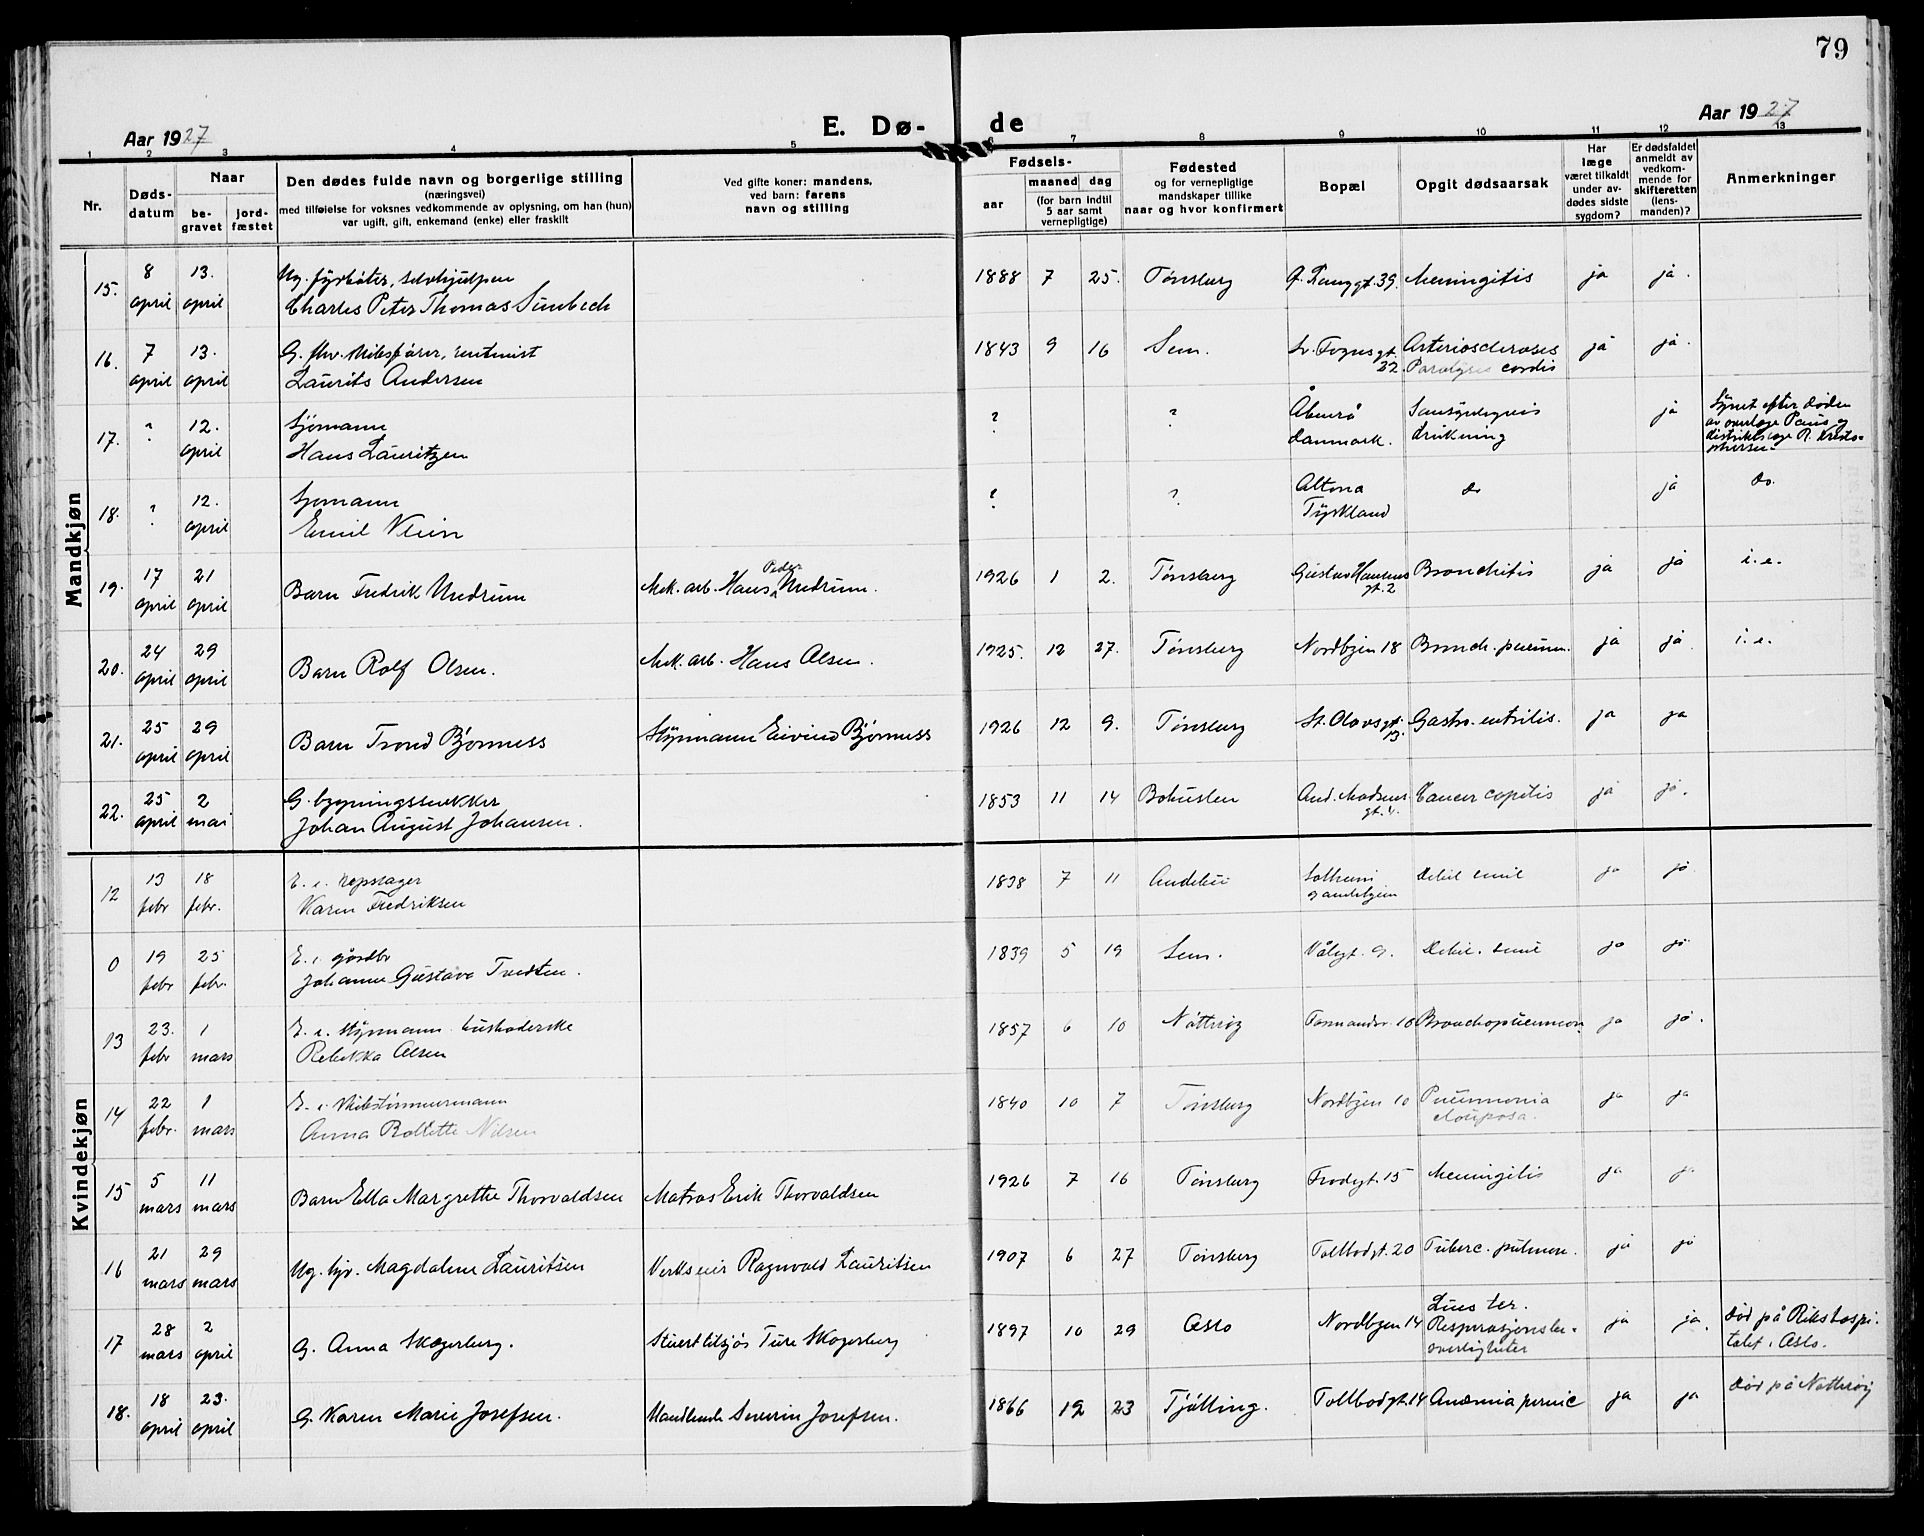 79
Aar 1927
E. Dø-
de
Aar 1927
1 2 3 4 5 6 7 8 9 10 11 12 13
Nr.
Døds-
datum
Naar
be-
gravet
jord-
fæstet
Den dødes fulde navn og borgerlige stilling
(næringsvei)
med tilføielse for voksnes vedkommende av oplysning, om han (hun)
var ugift, gift, enkemand (enke) eller fraskilt
Ved gifte koner: mandens,
ved barn: farens
navn og stilling
Fødsels-
aar
maaned
dag
(for barn indtil
5 aar samt
vernepligtige)
Fødested
og for vernepligtige
mandskaper tillike
naar og hvor konfirmert
Bopæl
Opgit dødsaarsak
Har
læge
været tilkaldt
under av-
dødes sidste
sygdom?
Er dødsfaldet
anmeldt av
vedkom-
mende for
skifteretten
(lens-
manden)?
Anmerkninger
Mandkjøn
15. 8 april 13. april Ug. fyrbøter, selvhjulpen
Charles Peter Thomas Sundbech 1888 7 25. Tønsberg 39. Meningitis ja ja.
16. 7 april 13. april G. fhv. skibsfører, rentenist
Laurits Andersen 1843 9 16 Sem. 22. Arteriosclerosis
Paralysis cordis ja ja.
17. ? 12. april Sjømann
Hans Lauritzen ? ? Åbenrå
Danmark. Sansynligvis
drukning ja Synet efter døden
av overlæge Paus og
distriktslæge R. Kristo-
phersen.
18. ? 12. april Sjømann
Emil ? ? Altona
Tyskland do ja do.
19. 17 april 21 april Barn Fredrik Undrum Mek. arb. Hans Peder Undrum. 1926 1 2. Tønsberg Gustav Hansens
gt. 2 Bronchitis ja ja i. e.
20. 24 april 29 april Barn Rolf Olsen. Mek. arb. Hans Olsen. 1925. 12 27. Tønsberg Nordbyen 18 Bronch. pneum. ja ja. i. e.
21. 25 april 29 april Barn Trond Bjørness Styrmann Eivind Bjørness 1926 12 9. Tønsberg St. Olavsgt.
13. Gastro-entritis. ja ja
22. 25 april 2 mai G. bygningssnekker
Johan August Johansen. 1853 11 14 Bohuslen And. Madsens
gt. 4. Cancer capitis ja ja.
Kvindekjøn
12 13 febr 18 febr. E. e. repslager
Karen Fredriksen 1838 7 11 Andebu Solheim
gamlehjem Debil. senil ja ja.
0 19 febr 25 febr. E. e. gårdbr
Johanne Gustava Tvedten. 1839 5 19 Sem. 9. Debil. senil ja ja
13 23. febr 1 mars E. e. styrmann husholderske
Rebekka Olsen 1857 6 10 Nøtterøy 10 Bronchopneumon. ja ja.
14 22 febr. 1 mars E. e. skibstømmermann
Anna Rollette Nilsen 1840 10 7 Tønsberg Nordbyen 10 Pneumonia
crouposa. ja ja
15 5 mars 11 mars Barn Ella Margrethe Thorvaldsen Matros Erik Thorvaldsen 1926 7 16 Tønsberg Frodegt. 15 Meningitis ja ja
16 21 mars 29 mars Ug. hjv. Magdalene Lauritsen Verkseier Ragnvald Lauritsen 1907 6 27 Tønsberg Tollbodgt. 20 Tuberc. pulmon. ja ja
17 28 mars 2 april G. Anna Skogerberg. Stuert tilsjøs Ture Skogerberg 1897 10 29 Oslo Nordbyen 14 Lues ter.
Respirasjonsbe-
sværligheter ja ja. Død på Rikshospi-
talet i Oslo.
18. 18 april 23. april G. Karen Marie Josefsen. Handlende Severin Josefsen. 1866 12 23 Tjølling. Tollbodgt. 14 Anæmia pernic ja ja Død på Nøtterøy